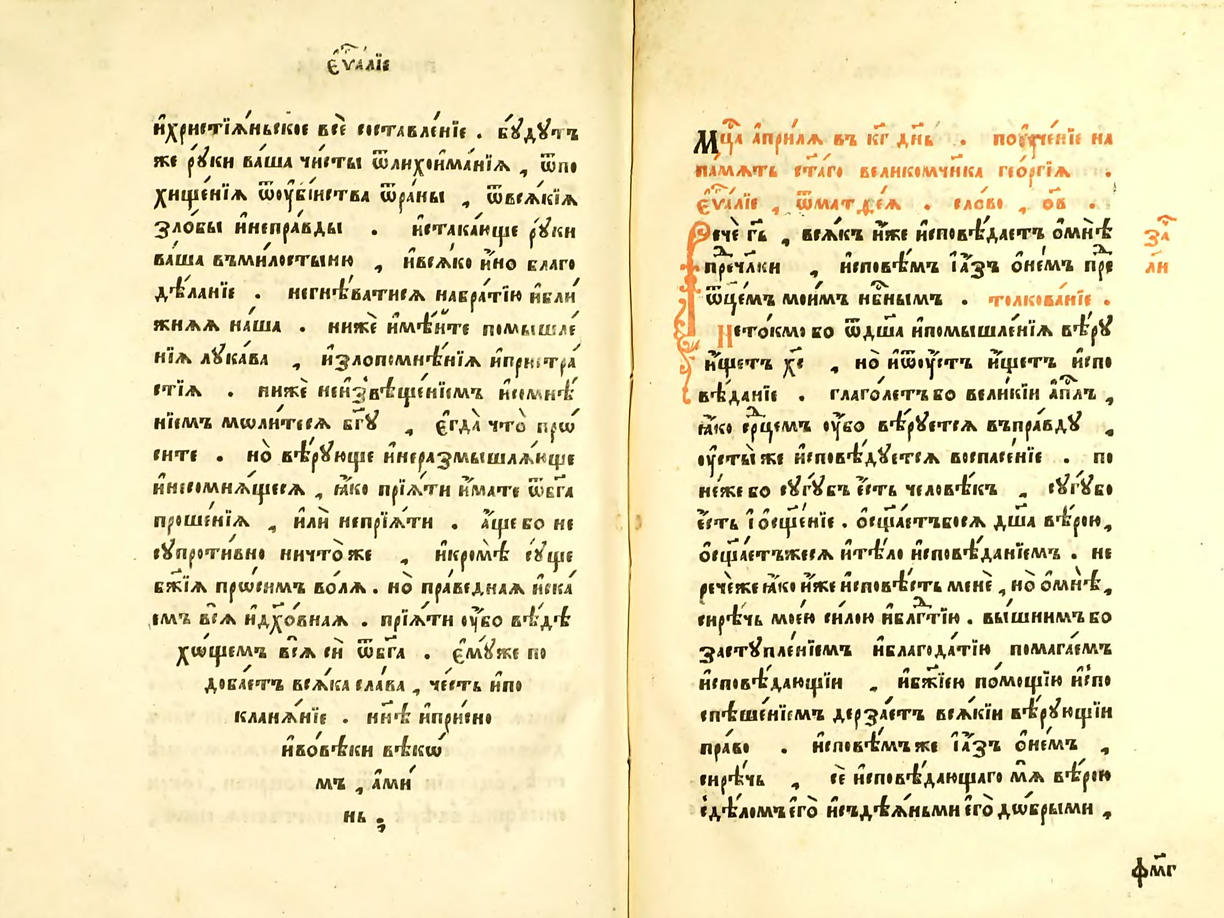 єѵ҃аліе
ихристїѧ́ньское всѐ составле́нїе . бꙋ́дꙋтъ
же рꙋ́ки ва́ша чи́сты ѿлихоима́нїѧ , ѿпо
хище́нїѧ ѿоуби́иства ѿра́ны , ѿвсѧ́кїѧ
зло́бы инепра́вды . истака́юще рꙋ́ки
ва́ша въми́лостыню , ивсѧ́ко и́но благо
дѣ́ланїе . негнѣ́ватисѧ набра́тїю ибли́
жнѧѧ на́ша . нижѐ имѣ́ите помышле́
нїѧ лꙋка́ва , изло́помнѣ́нїѧ ипристра́
стїѧ . нижѐ неизвѣще́нїемъ исомнѣ́
нїемъ мѡли́тесѧ бг҃ꙋ , єгда̀ что̀ прѡ́
сите . но̀ вѣ́рꙋюще инеразмышлѧ́юще
инесомнѧ́щесѧ , ꙗ́ко прїѧ́ти и́мате ѿбг҃а
проше́нїѧ , илѝ непрїѧ́ти . а́ще бо не
сꙋпроти́вно ничто́же , икромѣ̀ сꙋ́ще
бж҃їѧ прѡ́симъ во́лѧ . но̀ пра́веднаѧ иска́
емъ всѧ̀ идх҃о́внаѧ . прїѧ́ти ѹ́бо вѣ́дѣ
хѡ́щемъ всѧ̀ сѝ ѿбг҃а . ємꙋ́же по
доба́етъ всѧ́ка сла́ва , че́сть ипо
кланѧ́нїе . нн҃ѣ ипри́сно
ивовѣ́ки вѣкѡ́
мъ , ами́
нь .
Мц҃а апри́лѧ въ кг҃ дн҃ь . поꙋче́нїе на
па́мѧть ст҃а́го великомч҃ника гео́ргїѧ .
єѵ҃а́лїе , ѿматѳе́ѧ . сло́во , ѻв҃ .
Речѐ гь҃ , всѧ́къ и́же исповѣ́даетъ омнѣ̀
пречл҃ки , исповѣ́мъ їа́зъ онє́мъ пре
ѿц҃е́мъ мои́мъ нб҃нымъ . толкова́нїе .
Нето́кмо бо ѿдш҃а ипомышле́нїѧ вѣ́рꙋ
и́щетъ хс҃ , но̀ иѿѹ́стъ и́щетъ испо
вѣ́данїе . глаго́летъ бо вели́кїи ап҃лъ ,
ꙗ́ко ср҃цемъ ѹ́бо вѣ́рꙋетсѧ въпра́вдꙋ ,
ѹсты̀ же исповѣ́дꙋетсѧ воспасе́нїе . по
не́же бо сꙋгꙋ́бъ є́сть человѣ́къ , сꙋгꙋ́бо
є́сть ї осщ҃е́нїе . осщ҃а́етъбосѧ дш҃а вѣ́рою ,
осщ҃а́етъжесѧ итѣ́ло исповѣ́данїемъ . не
рече́же ꙗ́ко и́же исповѣ́сть менѐ , но̀ омнѣ̀ ,
си́рѣчь мое́ю си́лою иблг҃тїю . вы́шнимъ бо
застꙋпле́нїемъ иблагода́тїю помага́емъ
исповѣ́дающїи , ибж҃їею по́мощїю испо
спѣше́нїемъ дерза́етъ всѧ́кїи вѣ́рꙋющїи
пра́во . исповѣ́мъже їа́зъ онє́мъ ,
си́рѣчь , сѐ исповѣ́дающаго мѧ̀ вѣ́рою
сдѣ́ломъ єго̀ исъдѣѧ́ньми єго̀ до́брыми ,
за҃
ли
фмг҃